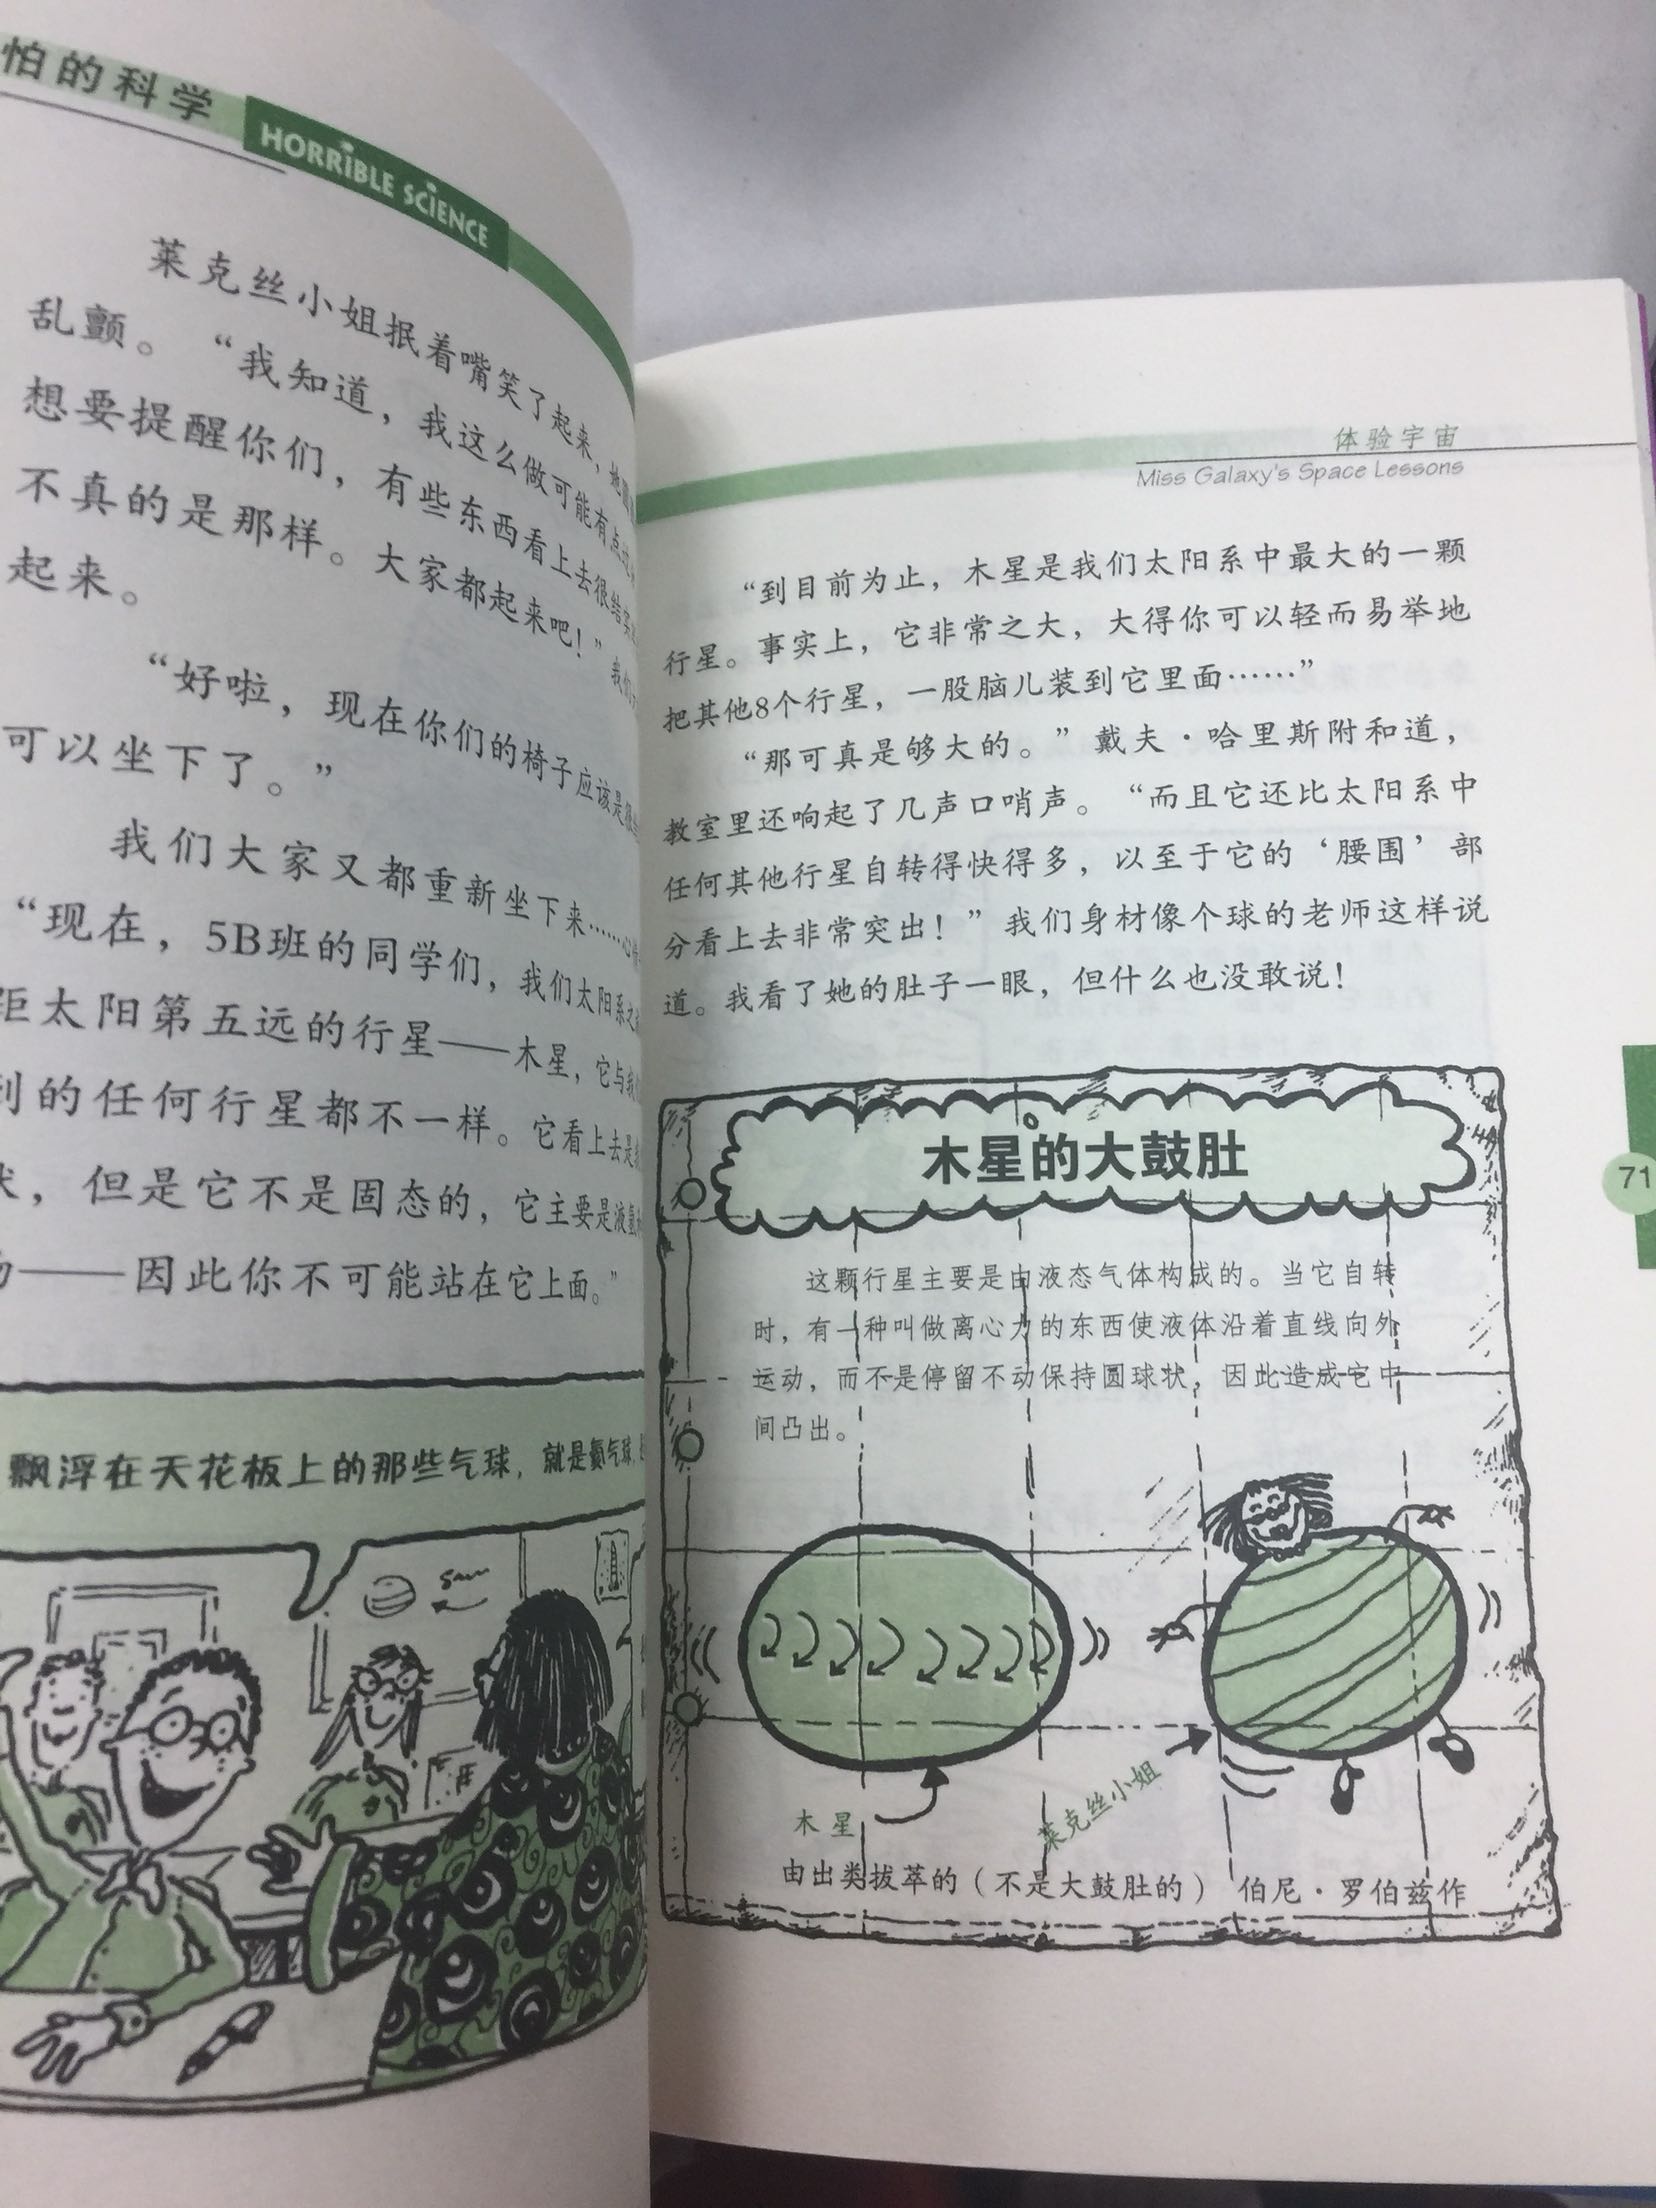 怕的科学
HORRIBLE SCIENCE
莱克丝小姐抿着嘴笑了起来，她
乱颤。“我知道，我这么做可能有点
想要提醒你们，有些东西看上去很结实
不真的是那样。大家都起来吧！”我们
起来。
“好啦，现在你们的椅子应该是
可以坐下了。”
我们大家又都重新坐下来……心
“现在，5B班的同学们，我们太阳系之
距太阳第五远的行星——木星，它与我
到的任何行星都不一样。它看上去是
状，但是它不是固态的，它主要是液氢
——因此你不可能站在它上面。”
飘浮在天花板上的那些气球，就是氦气球，
体验宇宙
Miss Galaxy's Space Lessons
“到目前为止，木星是我们太阳系中最大的一颗
行星。事实上，它非常之大，大得你可以轻而易举地
把其他8个行星，一股脑儿装到它里面……”
“那可真是够大的。”戴夫·哈里斯附和道，
教室里还响起了几声口哨声。“而且它还比太阳系中
任何其他行星自转得快得多，以至于它的‘腰围’部
分看上去非常突出！”我们身材像个球的老师这样说
道。我看了她的肚子一眼，但什么也没敢说！
71
木星的大鼓肚
这颗行星主要是由液态气体构成的。当它自转
时，有一种叫做离心力的东西使液体沿着直线向外
运动，而不是停留不动保持圆球状，因此造成它中
间凸出。
木星
莱克丝小姐
由出类拔萃的（不是大鼓肚的） 伯尼·罗伯兹作